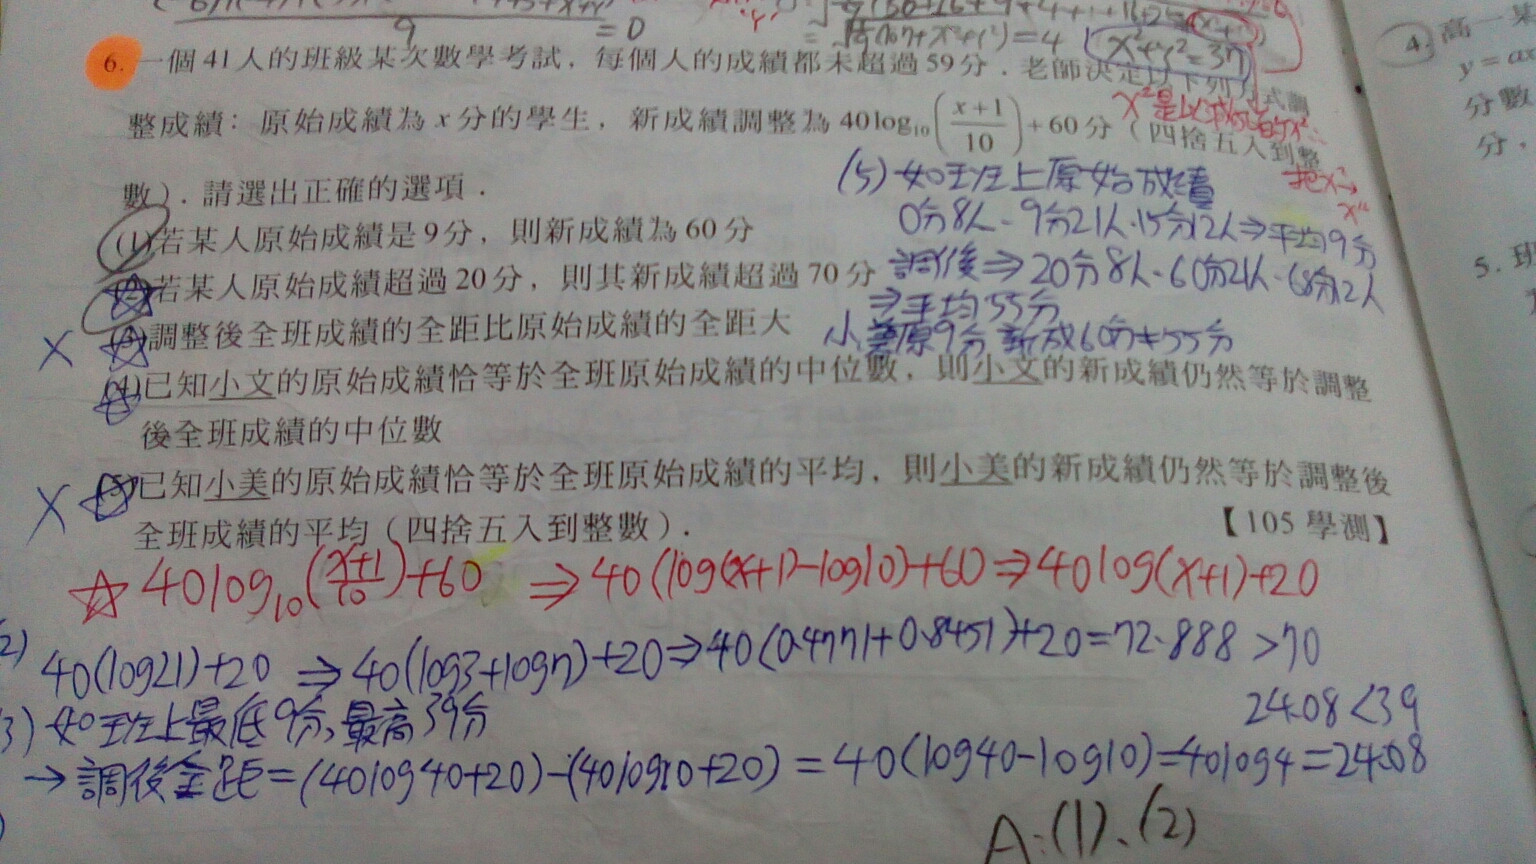 = 0
9
x²+y²=37
6. 一個 41 人的班級某次數學考試，每個人的成績都未超過 59 分．老師決定以下列方式調
整成績：原始成績為 x 分的學生，新成績調整為 40log₁₀((x+1)/10)+60 分（四捨五入到整
數）．請選出正確的選項．
(1)若某人原始成績是 9 分，則新成績為 60 分
(2)若某人原始成績超過 20 分，則其新成績超過 70 分
(3)調整後全班成績的全距比原始成績的全距大
(4)已知小文的原始成績恰等於全班原始成績的中位數，則小文的新成績仍然等於調整
後全班成績的中位數
(5)已知小美的原始成績恰等於全班原始成績的平均，則小美的新成績仍然等於調整後
全班成績的平均（四捨五入到整數）．
【105 學測】
(5) 如班上原始成績
0分8人、9分21人、15分12人⇒平均9分
調後⇒20分8人、60分21人、68分12人
⇒平均55分
小美原9分 新成60分≠55分
X
X
☆ 40log₁₀((x+1)/10)+60 ⇒ 40(log(x+1)-log10)+60 ⇒ 40log(x+1)+20
2) 40(log21)+20 ⇒ 40(log3+log7)+20 ⇒ 40(0.4771+0.8451)+20=72.888 >70
3) 如班上最低9分，最高39分
24.08<39
→ 調後全距=(40log40+20)-(40log10+20) = 40(log40-log10)=40log4=24.08
A:(1)、(2)
4. 高一某
y = ax
分數
分，
5. 班